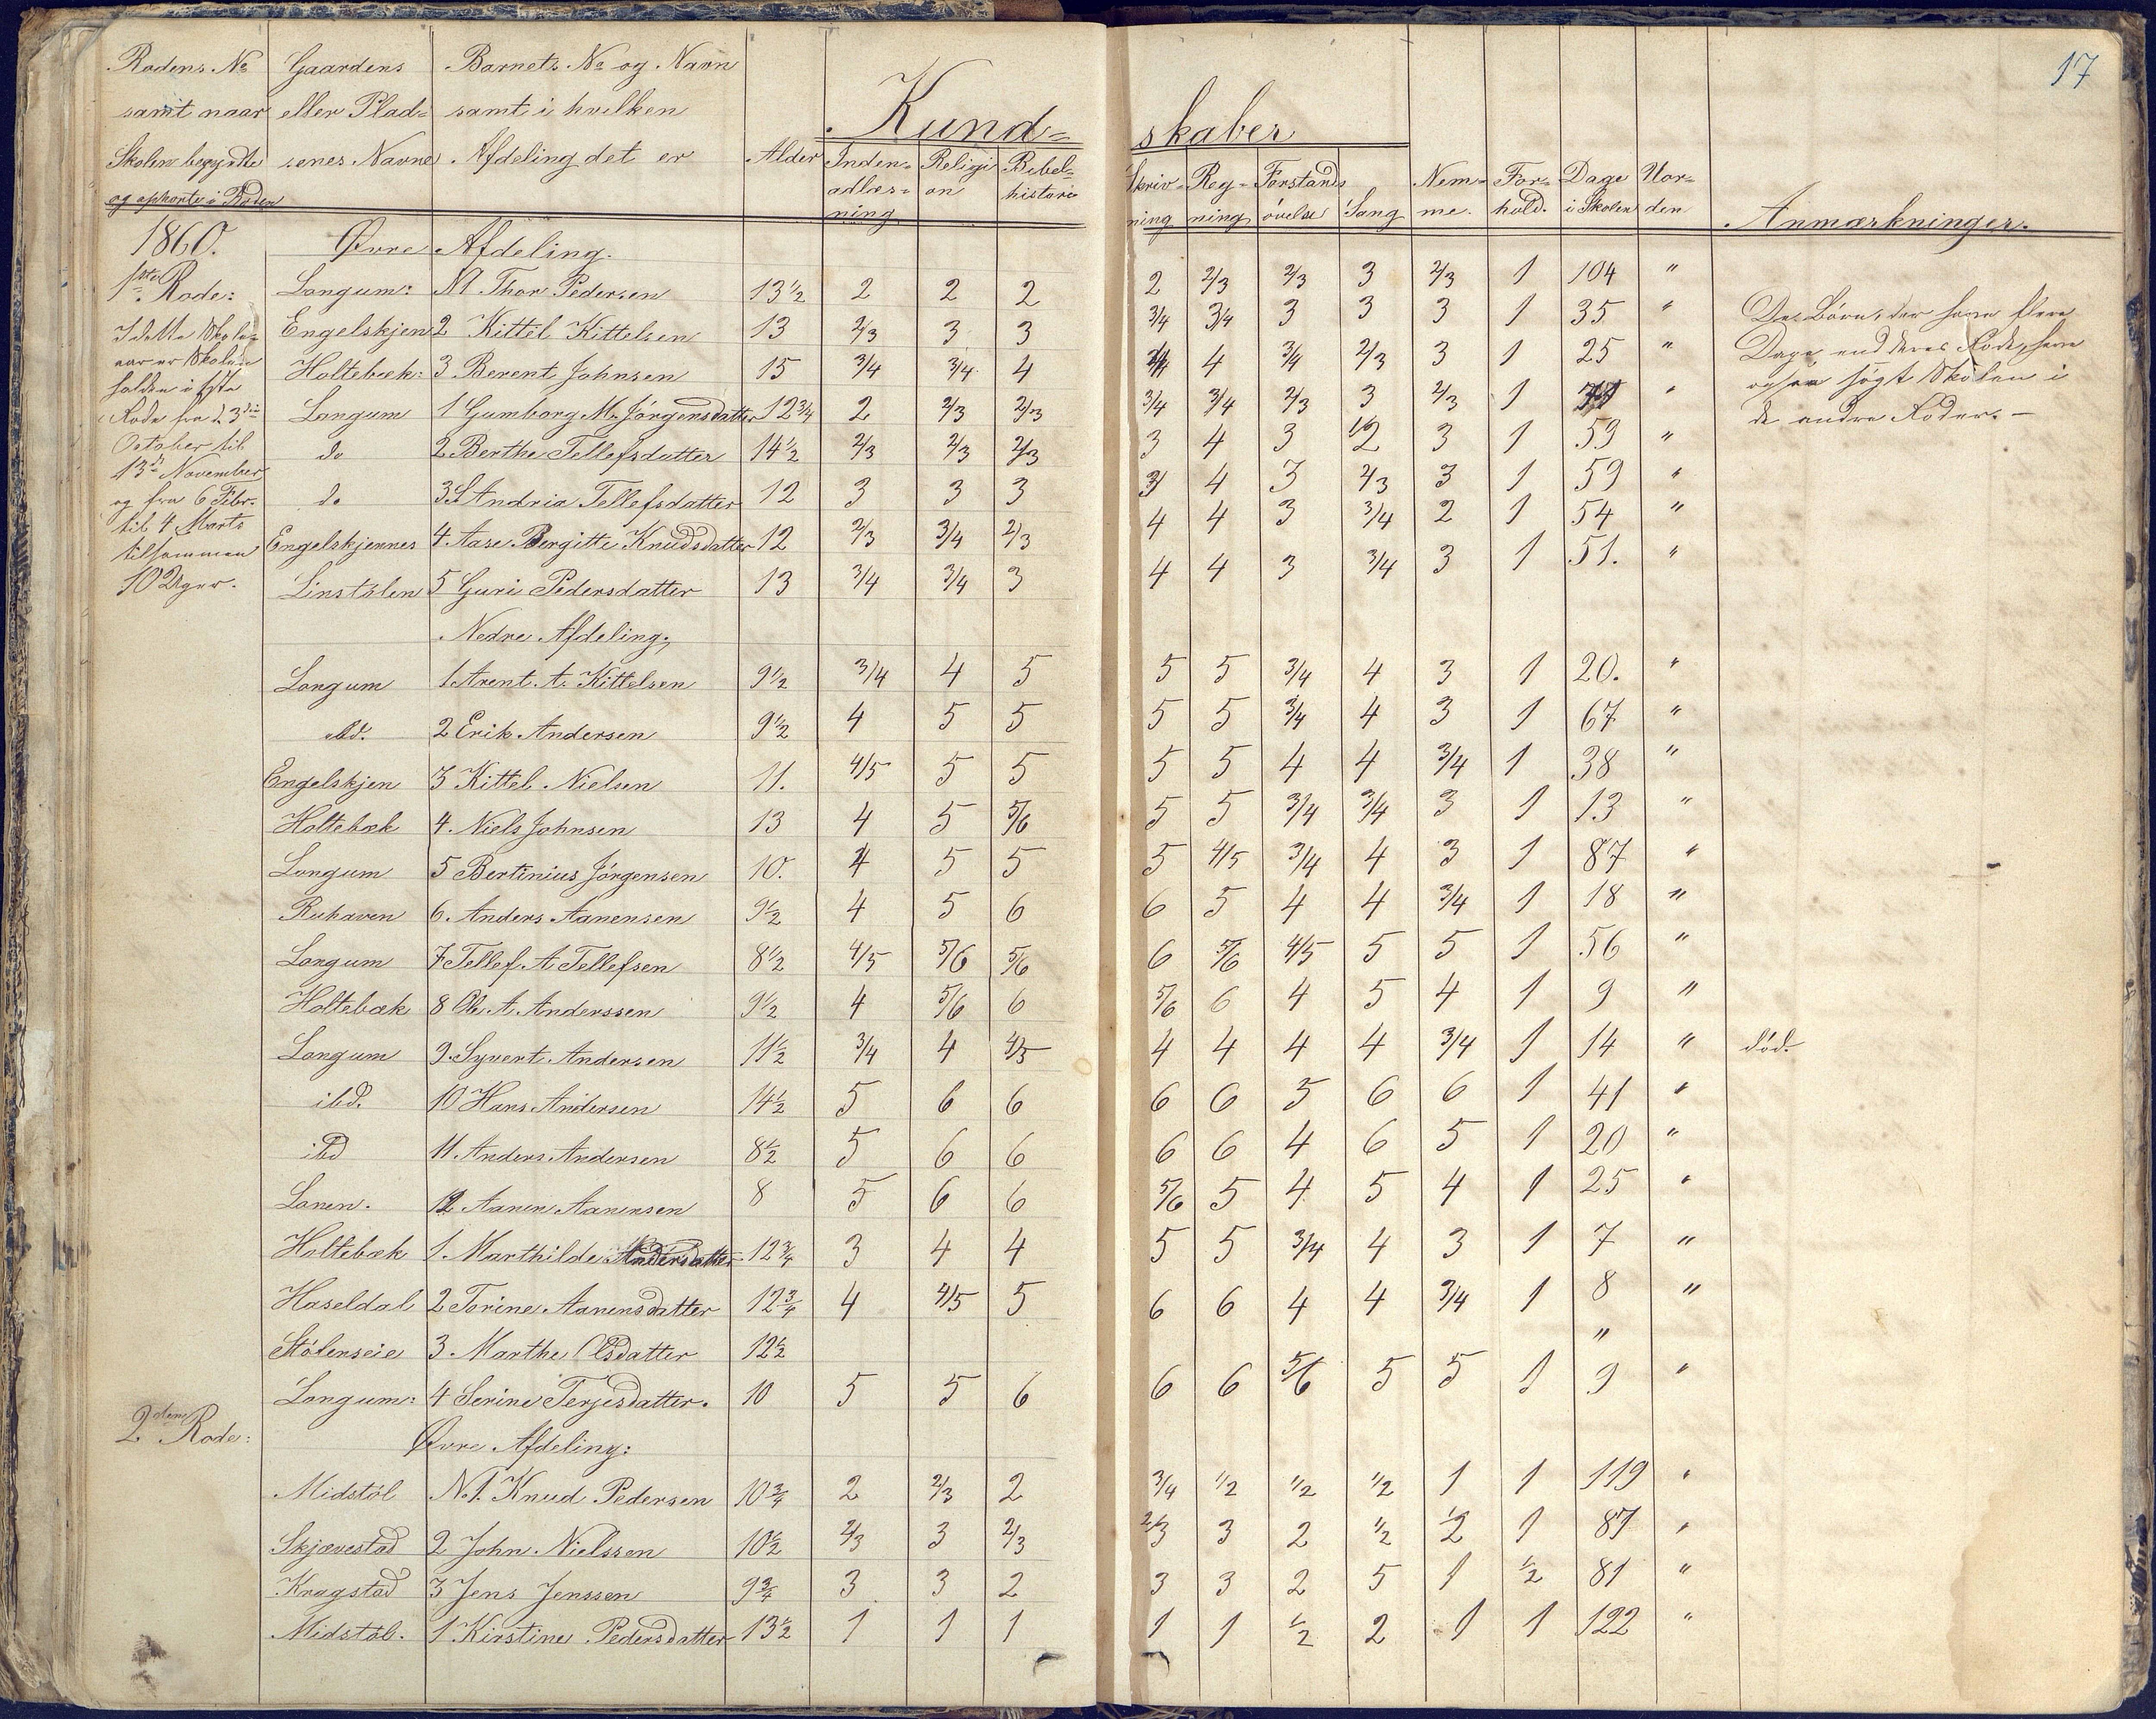 17
Rodens No Gaardens Barnets No og Navn
samt naar eller Plad= samt i hvilken Kund= skaber
Skolen begyndte senes Navne Afdeling det er Alder Inden= Religi Bibel= Skriv= Reg= Forstands Nem= For= Dage Uor=
og ophørte i Roden adlæs= on historie ning ning øvelse Sang me. hold. i Skolen den Anmærkninger.
ning
1860. Øvre Afdeling.
1ste Rode: Langum: N1 Thor Pedersen 13½ 2 2 2 2 2/3 2/3 3 2/3 1 104 "
I dette Skole= Engelskjen 2 Kittel Kittelsen 13 2/3 3 3 3/4 3/4 3 3 3 1 35 " De Børn, der have flere
aar er Skolen Holtebæk: 3 Berent Johnsen 15 3/4 3/4 4 4 3/4 2/3 3 1 25 " Dage end deres Rode, have
holden i første Langum 1 Gumborg M. Jörgensdatter 12¾ 2 2/3 2/3 3/4 3/4 2/3 3 2/3 1 " ogsaa søgt Skolen i
Rode fra d. 3die do 2 Berthe Tellefsdatter 14½ 2/3 2/3 2/3 3 4 3 2 3 1 59 " de andre Roder. —
October til
13de November do 3 S Andria Tellefsdatter 12 3 3 3 4 3 2/3 3 1 59 "
og fra 6 Febr.
til 4 Marts Engelskjennes 4. Aase Bergitte Knudsdatter 12 2/3 3/4 2/3 4 4 3 3/4 2 1 54 "
tilsammen
10 Uger. Linstölen 5 Guri Pedersdatter 13 3/4 3/4 3 4 4 3 3/4 3 1 51. "
Nedre Afdeling.
Langum 1 Arent A. Kittelsen 9½ 3/4 4 5 5 5 3/4 4 3 1 20. "
ibd. 2 Erik Andersen 9½ 4 5 5 5 5 3/4 4 3 1 67 "
Engelskjen 3 Kittel Nielsen 11. 4/5 5 5 5 5 4 4 3/4 1 38 "
Holtebæk 4. Niels Johnsen 13 4 5 5/6 5 5 3/4 3/4 3 1 13 "
Langum 5 Bertinius Jörgensen 10. 4 5 5 5 4/5 3/4 4 3 1 87 "
Ruhaven 6. Anders Aanensen 9½ 4 5 6 6 5 4 4 3/4 1 18 "
Langum 7 Tellef A Tellefsen 8½ 4/5 5/6 5/6 6 5/6 4/5 5 5 1 56 "
Holtebæk 8 Ole A. Anderssen 9½ 4 5/6 6 5/6 6 4 5 4 1 9 "
Langum 9. Syvert Andersen 11½ 3/4 4 4/5 4 4 4 4 3/4 1 14 " död.
ibd. 10 Hans Andersen 14½ 5 6 6 6 6 5 6 6 1 41 "
ibd 11. Anders Andersen 8½ 5 6 6 6 6 4 6 5 1 20 "
Lanen. 12 Aanen Aanensen 8 5 6 6 5/6 5 4 5 4 1 25 "
Holtebæk 1. Marthilde Andersdatter 12¾ 3 4 4 5 5 3/4 4 3 1 7 "
Haseldal 2 Torine Aanensdatter 12¾ 4 4/5 5 6 6 4 4 3/4 1 8 "
Stölenseie 3. Marthe Olsdatter 12½ "
Langum: 4 Serine Terjesdatter. 10 5 5 6 6 6 5/6 5 5 1 9 "
2den Rode: Øvre Afdeling:
Midstöl N.1. Knud Pedersen 10¾ 2 2/3 2 3/4 1/2 1/2 1/2 1 1 119 "
Skjævestad 2 John Nielssen 10½ 2/3 3 2/3 2/3 3 2 1/2 1/2 1 87 "
Kragstad 3 Jens Jenssen 9¾ 3 3 2 3 3 2 5 1 1/2 81 "
Midstöl. 1 Kirstine Pedersdatter 13½ 1 1 1 1 1 1/2 2 1 1 122 "